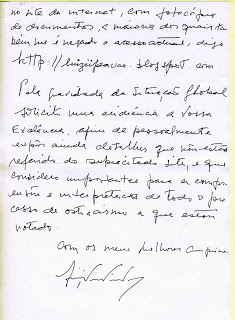 no site da internet, com fotocópias
de documentos, a maioria dos quais ta
bém me é negado o acesso actual, digo
http://luizinpavao.blogspot.com.
Pela gravidade da Situação Global
solicito uma audiência a Vossa
Exalência, afim de pessoalmente
expôr ainda detalhes que não estão
referidos do supracitado site, e que
considero importantes para a compre
ensão e interpretação de todo o pro
cesso de ostracismo a que estou
votado.
Com os meus melhores cumprimen